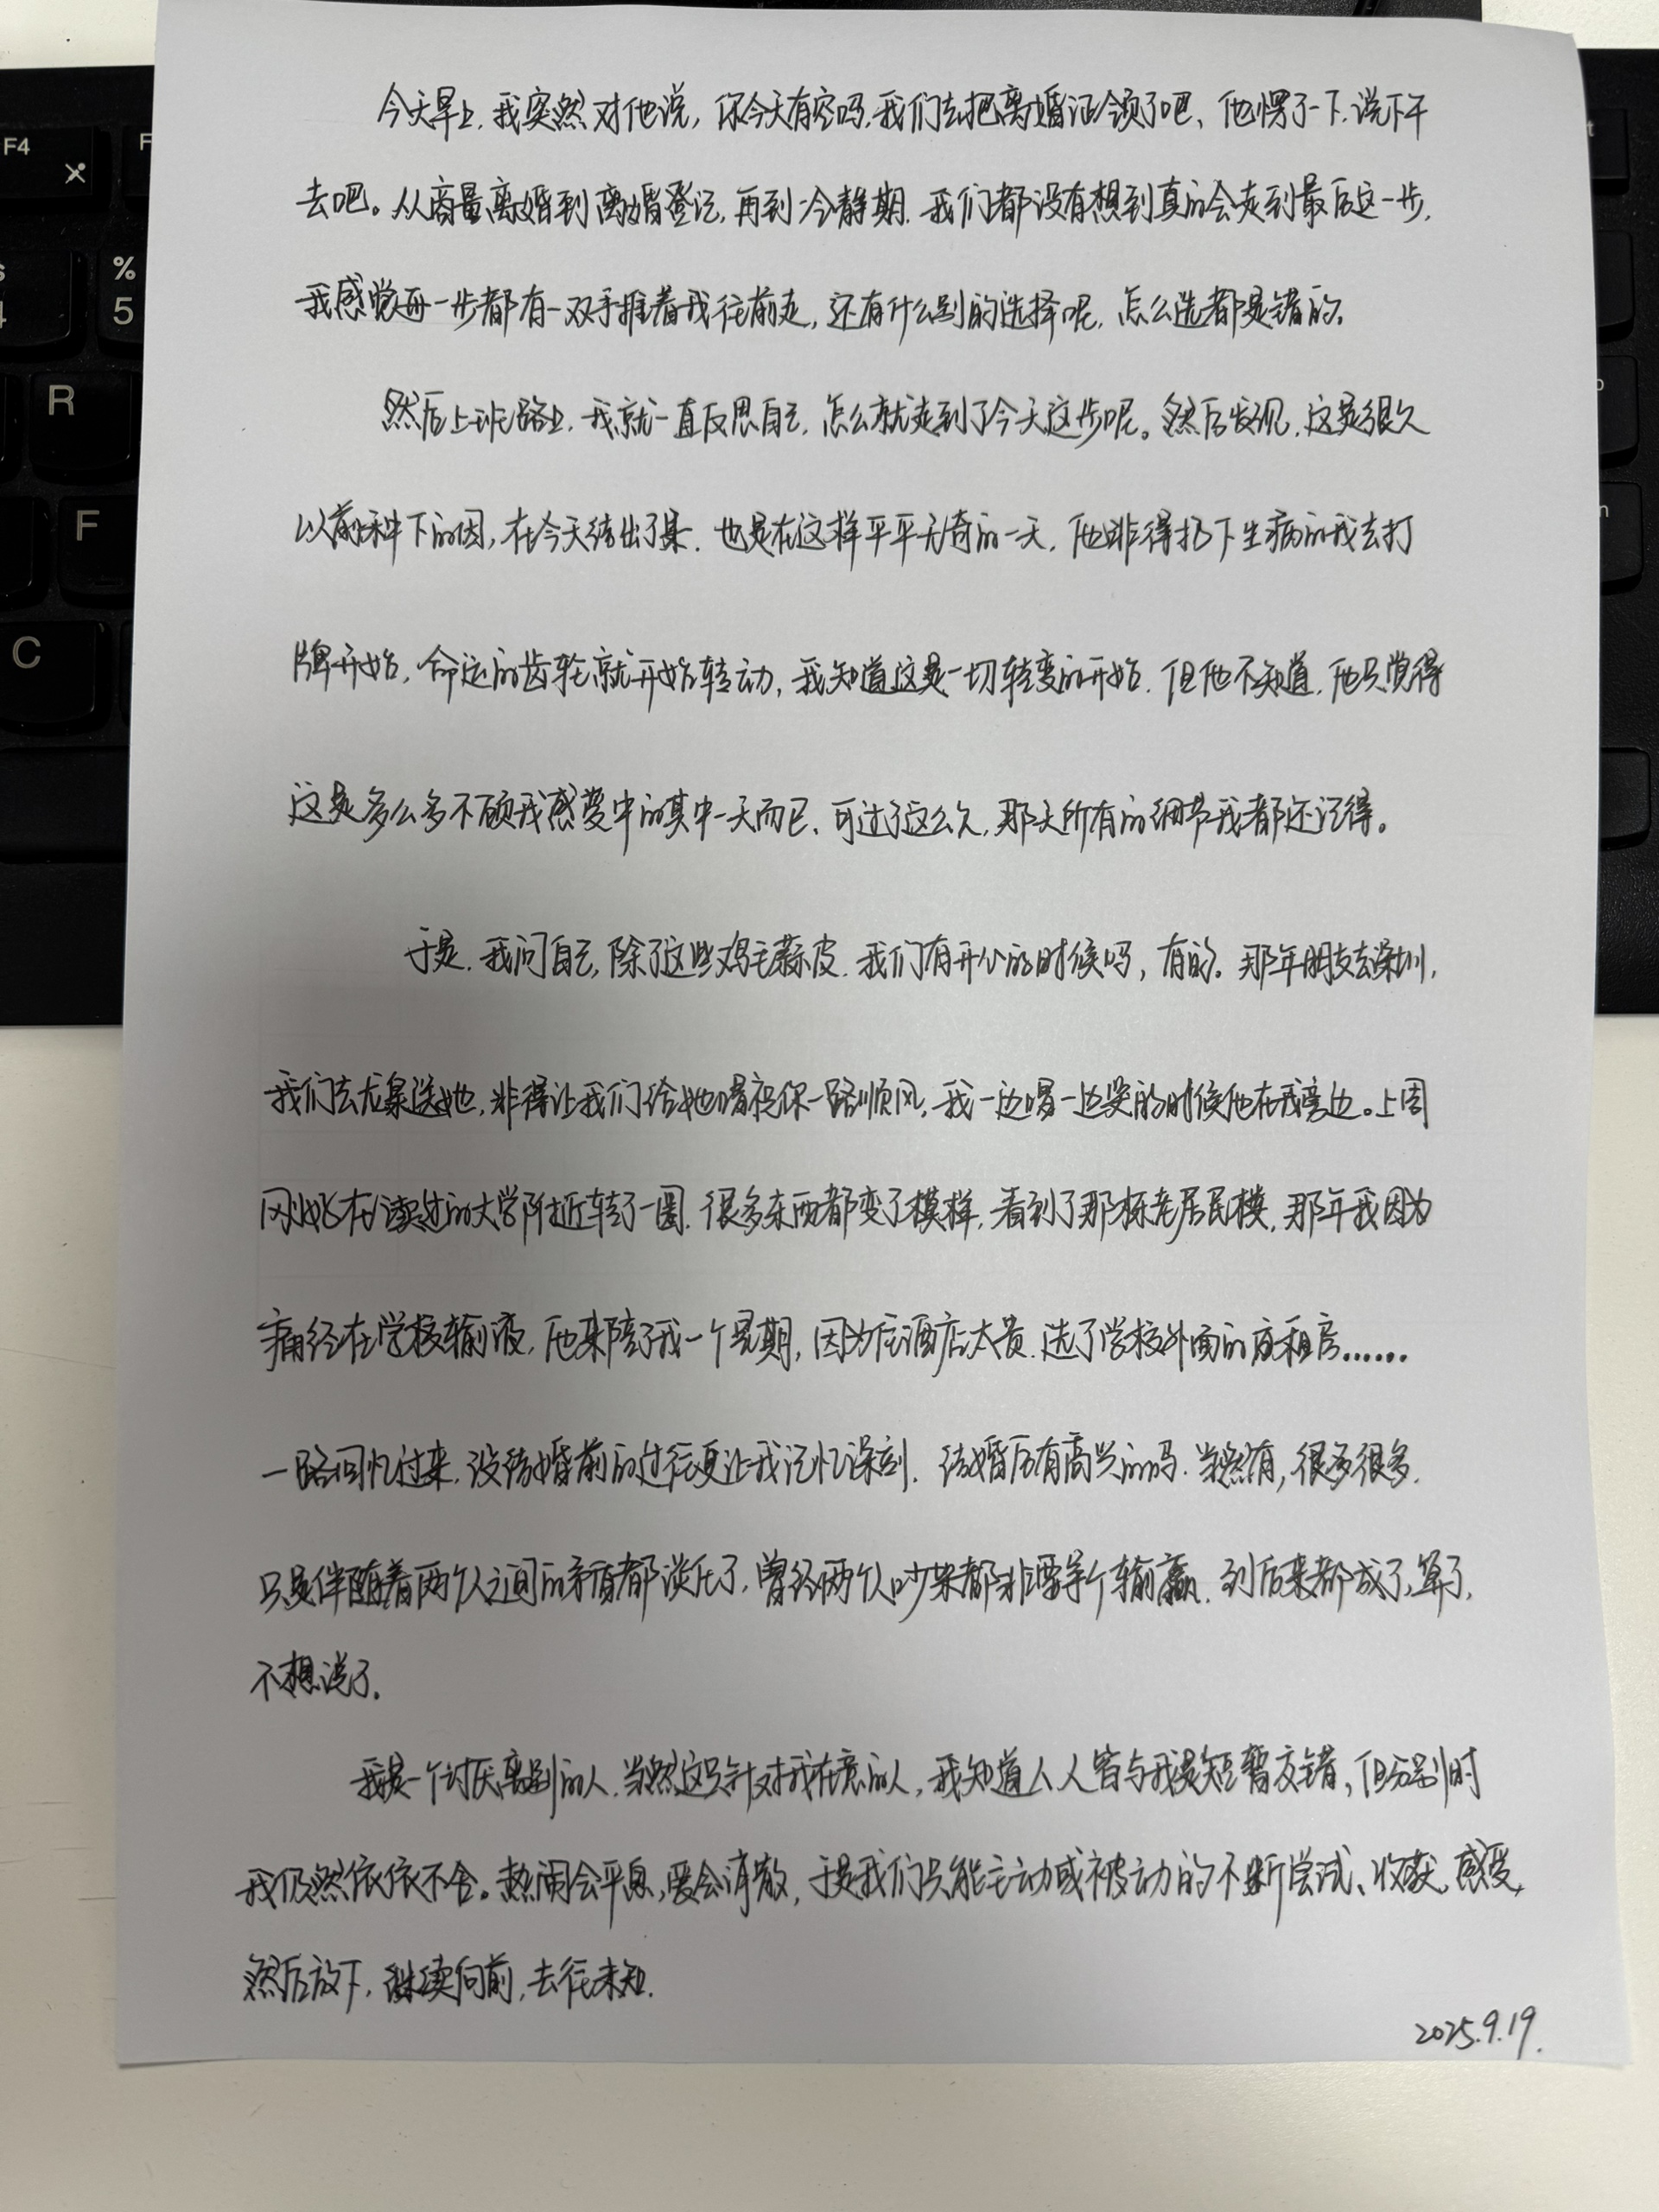 今天早上,我突然对他说,你今天有空吗,我们去把离婚证领了吧、他愣了一下,说下午
去吧。从商量离婚到离婚登记,再到冷静期,我们都没有想到真的会走到最后这一步,
我感觉每一步都有一双手推着我往前走,还有什么别的选择呢,怎么选都是错的。
然后上班路上,我就一直反思自己,怎么就走到了今天这步呢。然后发现,这是很久
以前种下的因,在今天结出了果,也是在这样平平无奇的一天,他非得扔下生病的我去打
牌开始,命运的齿轮就开始转动,我知道这是一切转变的开始,但他不知道,他只觉得
这是多么多不顾我感受中的其中一天而已、可过了这么久,那天所有的细节我都还记得。
于是,我问自己,除了这些鸡毛蒜皮,我们有开心的时候吗,有的。那年朋友去深圳,
我们去龙泉送她,非得让我们给她唱祝你一路顺风,我一边唱一边哭的时候他在我旁边。上周
刚好在读过的大学附近转了一圈,很多东西都变了模样,看到了那栋老居民楼,那年我因为
痛经在学校输液,他来陪了我一个星期,因为住酒店太贵,选了学校外面的短租房......
一路回忆过来,没结婚前的过往更让我记忆深刻,结婚后有高兴的吗,当然有,很多很多,
只是伴随着两个人之间的矛盾都淡化了,曾经两个人吵架都非要争个输赢,到后来都成了,算了,
不想说了。
我是一个讨厌离别的人,当然这只针对我在意的人,我知道人人皆与我是短暂交错,但分别时
我仍然依依不舍。热闹会平息,爱会消散,于是我们只能主动或被动的不断尝试、收获,感受,
然后放下,继续向前,去往未知.
2025.9.19.